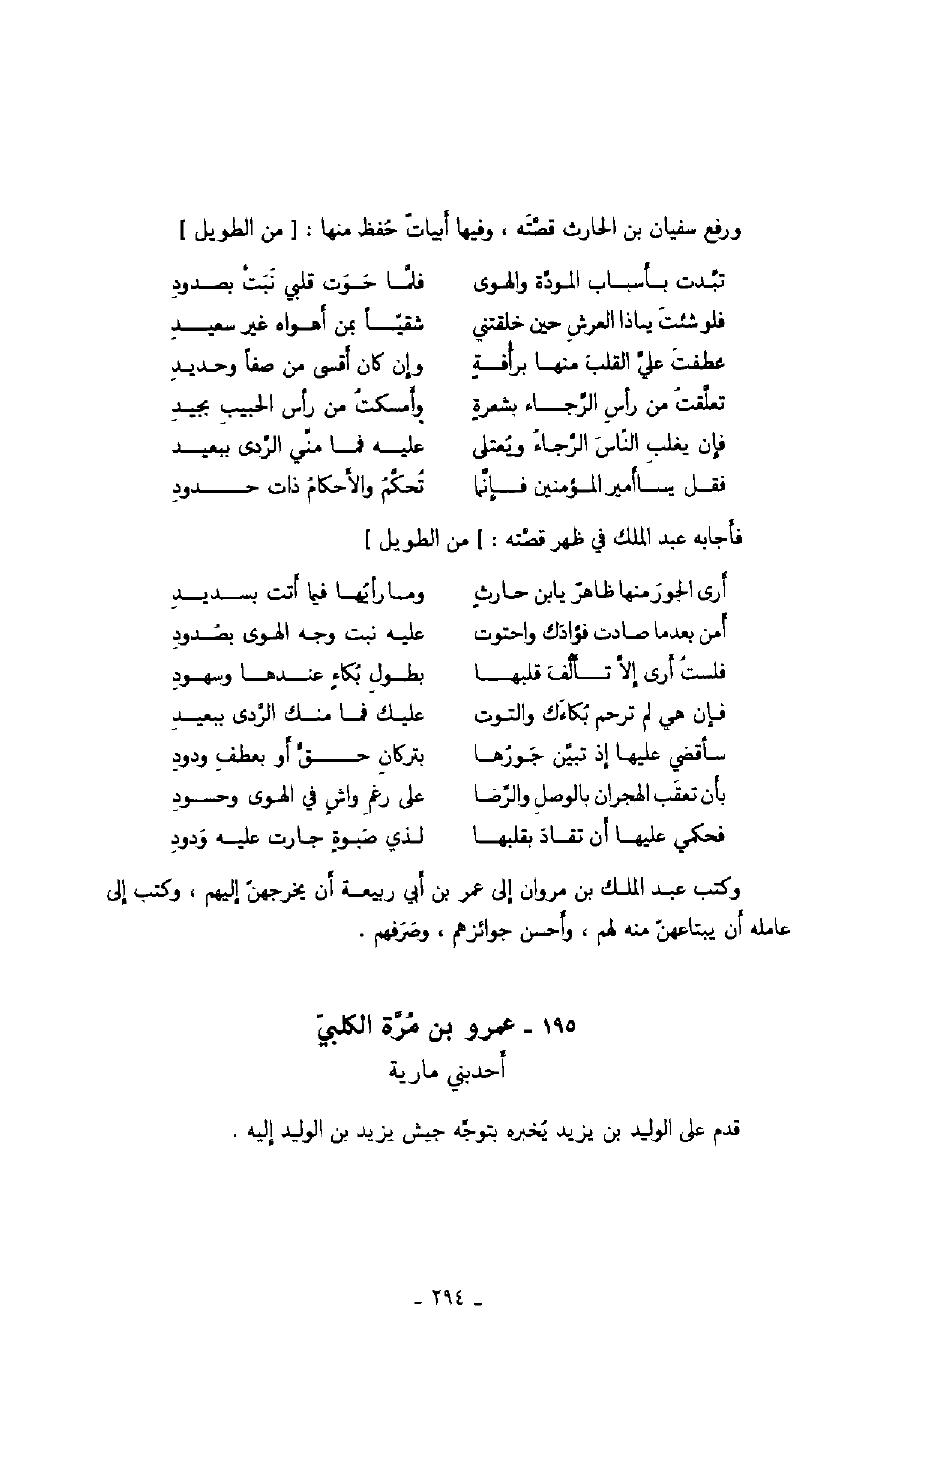 ورفع سفيان بن الحارث قصّته ، وفيها أبياتٌ حُفظ منها : [ من الطويل ]
تبّدت بأسباب المودّة والهوى فلمّا حَوَت قلبي نَبَتْ بصدودِ
فلو شئتَ ياذا العرشِ حين خلقتني شقيّاً بمن أهواه غير سعيدِ
عطفتَ عليّ القلبَ منها برأفةٍ وإن كان أقسى من صفاً وحديدِ
تعلّقتُ من رأس الرّجاء بشعرةٍ وأمسكتُ من رأس الحبيبِ بجيدِ
فإن يغلبِ النّاسَ الرّجاءُ ويُعتلى عليه فما منّي الرّدى ببعيدِ
فقل ياأمير المؤمنين فإنّما تُحكَّمُ والأحكامُ ذات حدودِ
فأجابه عبد الملك في ظهر قصّته : [ من الطويل ]
أرى الجورَ منها ظاهرٌ يابن حارثٍ ومارأيُها فيما أتت بسديدِ
أمن بعدما صادت فؤادَك واحتوت عليه نبت وجه الهوى بصُدودِ
فلستُ أرى إلاّ تألّفَ قلبها بطولِ بُكاءٍ عندها وسهودِ
فإن هي لم ترحم بُكاءَك والتوت عليك فما منك الرّدى ببعيدِ
سأقضي عليها إذ تبيّن جَورُها بتركانِ حقٍّ أو بعطفِ ودودِ
بأن تعقَب الهجران بالوصل والرّضا على رغم واشٍ في الهوى وحسودِ
فحكمي عليها أن تقادَ بقلبها لذي صَبوةٍ جارت عليه وَدودِ
وكتب عبد الملك بن مروان إلى عمر بن أبي ربيعة أن يخرجهنّ إليهم ، وكتب إلى
عامله أن يبتاعهنّ منه لهم ، وأحسن جوائزهم ، وصَرَفهم .
١٩٥ - عمرو بن مُرَّة الكلبيّ
أحدبني مارية
قدم على الوليد بن يزيد يُخبره بتوجّه جيش يزيد بن الوليد إليه .
- ٢٩٤ -